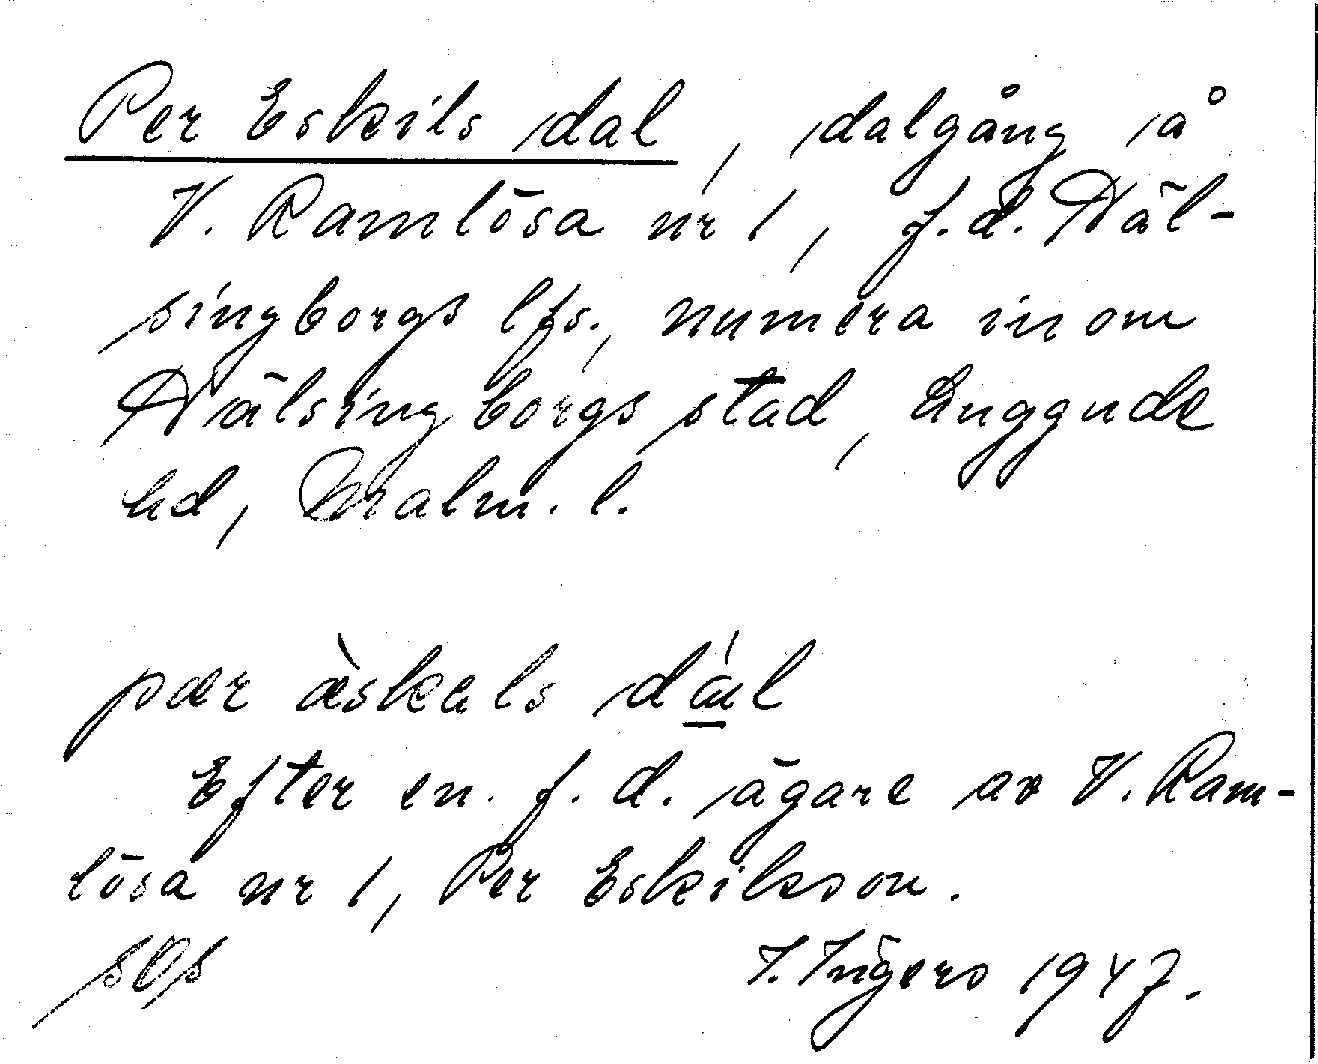 Per Eskils dal, dalgång å
V. Ramlösa nr 1, f.d. Häl-
singborgs lfs., numera inom
Hälsingborgs stad, Luggude
hd, Malm. l.
pær æ̀skəls dál
Efter en f.d. ägare av V. Ram-
lösa nr 1, Per Eskilsson.
I. Ingers 1947.